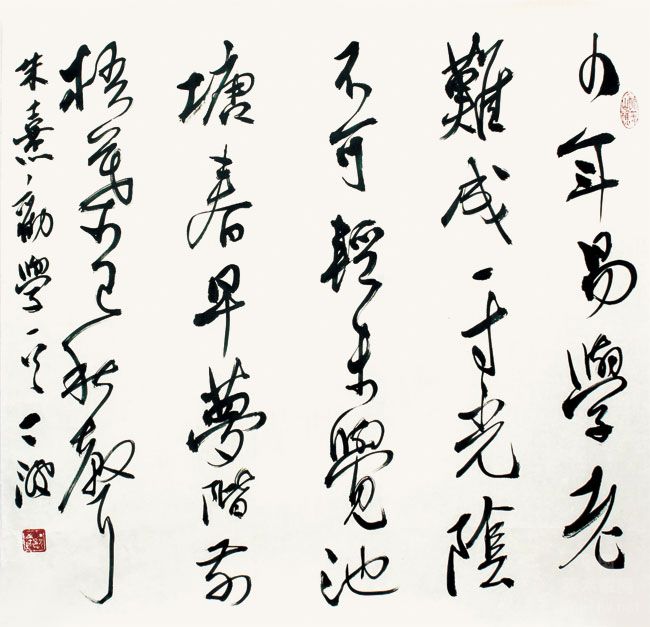 少年易學老
難成一寸光陰
不可輕未覺池
塘春草夢階前
梧葉已秋聲
朱熹勸學